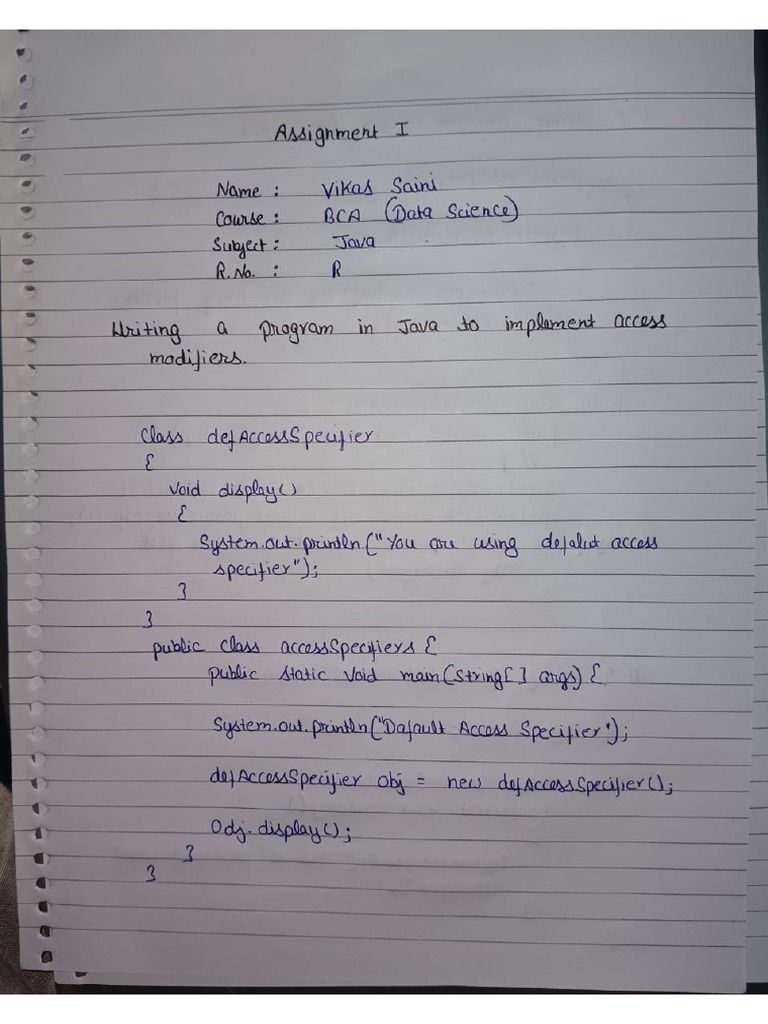 Assignment I
Name : Vikas Saini
Course : BCA (Data Science)
Subject : Java
R.No. : R
Writing a program in Java to implement access
modifiers.
Class defAccessSpecifier
{
void display()
{
System.out.println("You are using defalut access
specifier");
}
}
public class accessSpecifiers {
public static void main(String[] args) {
System.out.println("Dafault Access Specifier");
defAccessSpecifier obj = new defAccessSpecifier();
Odj.display();
}
}